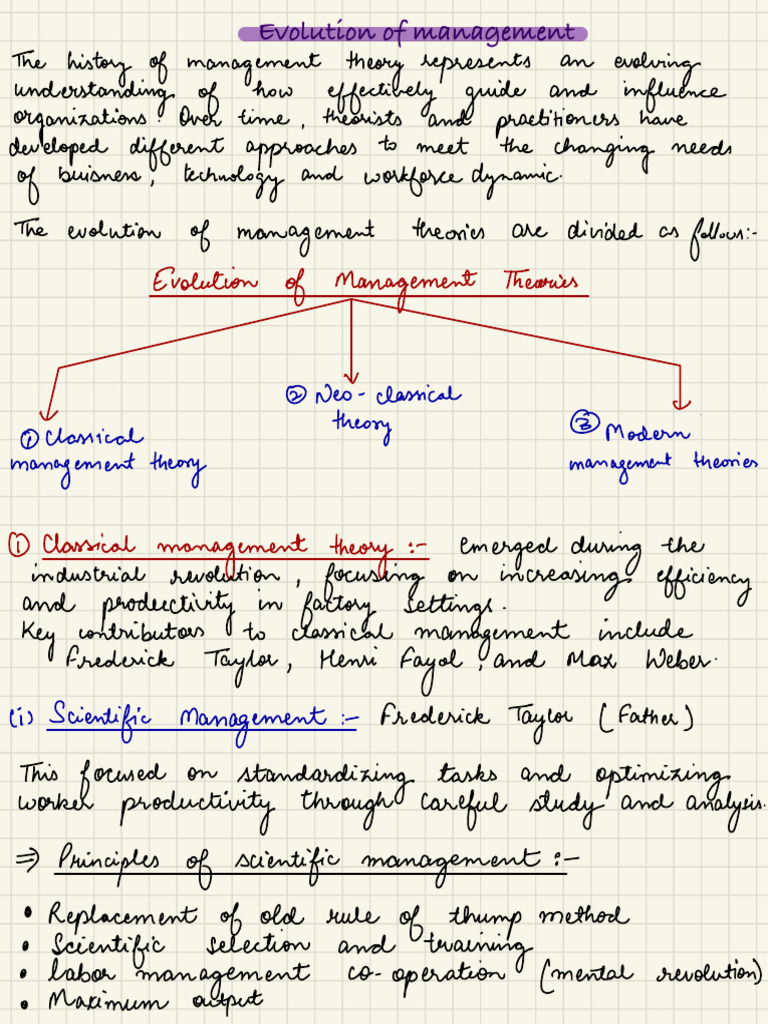 Evolution of management
The history of management theory represents an evolving
understanding of how effectively guide and influence
organizations. Over time, theorists and practitioners have
developed different approaches to meet the changing needs
of buisness, technology and workforce dynamic.
The evolution of management theories are divided as follows:-
Evolution of Management Theories
① Classical
management theory
② Neo-classical
theory
③ Modern
management theories
① Classical management theory :- emerged during the
industrial revolution, focusing on increasing efficiency
and productivity in factory settings.
Key contributors to classical management include
Frederick Taylor, Henri Fayol, and Max Weber.
(i) Scientific Management :- Frederick Taylor (Father)
This focused on standardizing tasks and optimizing
worker productivity through careful study and analysis.
⇒ Principles of scientific management :-
• Replacement of old rule of thump method
• Scientific selection and training
• Labor management co-operation (mental revolution)
• Maximum output